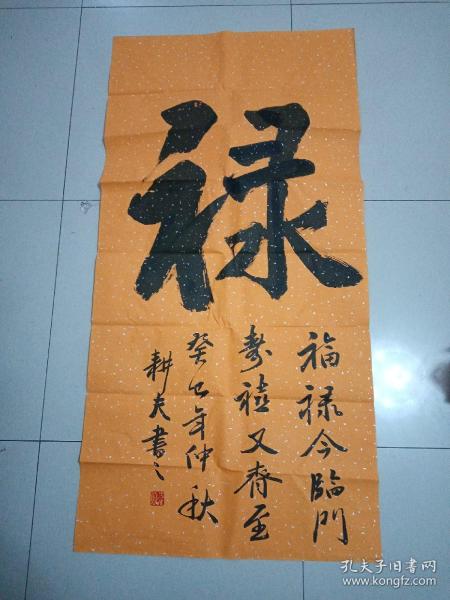 禄
福禄今臨門
寿禧又齊至
癸巳年仲秋
耕夫書之
孔夫子旧书网
www.kongfz.com